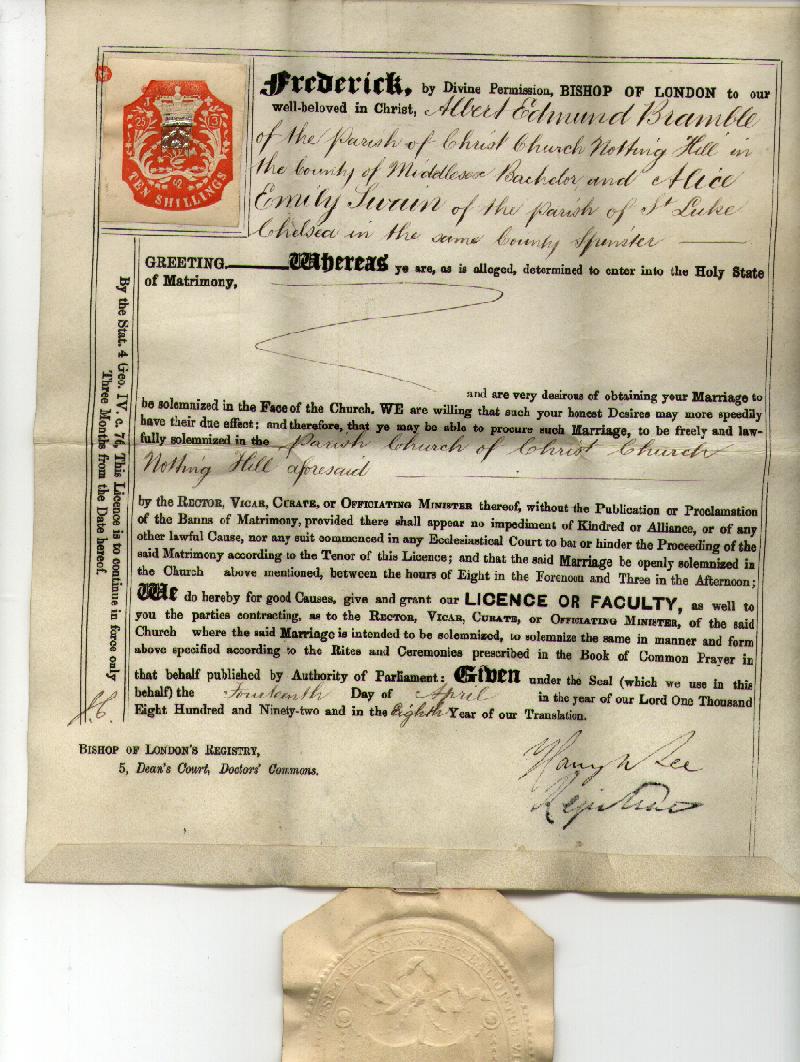 J
25
3
TEN SHILLINGS
Frederick, by Divine Permission, BISHOP OF LONDON to our
well-beloved in Christ, Albert Edmund Bramble
of the Parish of Christ Church Notting Hill in
the County of Middlesex Bachelor and Alice
Emily Swain of the parish of St Luke
Chelsea in the same County Spinster
GREETING. Whereas ye are, as is alleged, determined to enter into the Holy State
of Matrimony,
and are very desirous of obtaining your Marriage to
be solemnized in the Face of the Church. WE are willing that such your honest Desires may more speedily
have their due effect; and therefore, that ye may be able to procure such Marriage, to be freely and law-
fully solemnized in the Parish Church of Christ Church
Notting Hill aforesaid
by the RECTOR, VICAR, CURATE, OR OFFICIATING MINISTER thereof, without the Publication or Proclamation
of the Banns of Matrimony, provided there shall appear no impediment of Kindred or Alliance, or of any
other lawful Cause, nor any suit commenced in any Ecclesiastical Court to bar or hinder the Proceeding of the
said Matrimony according to the Tenor of this Licence; and that the said Marriage be openly solemnized in
the Church above mentioned, between the hours of Eight in the Forenoon and Three in the Afternoon;
We do hereby for good Causes, give and grant our LICENCE OR FACULTY, as well to
you the parties contracting, as to the RECTOR, VICAR, CURATE, OR OFFICIATING MINISTER, of the said
Church where the said Marriage is intended to be solemnized, to solemnize the same in manner and form
above specified according to the Rites and Ceremonies prescribed in the Book of Common Prayer in
that behalf published by Authority of Parliament: Given under the Seal (which we use in this
behalf) the Fourteenth Day of April in the year of our Lord One Thousand
Eight Hundred and Ninety-two and in the Eighth Year of our Translation.
By the Stat. 4 Geo. IV. c. 76, This Licence is to continue in force only
Three Months from the Date hereof.
BISHOP OF LONDON'S REGISTRY,
5, Dean's Court, Doctors' Commons.
Harry W Lee
Registrar